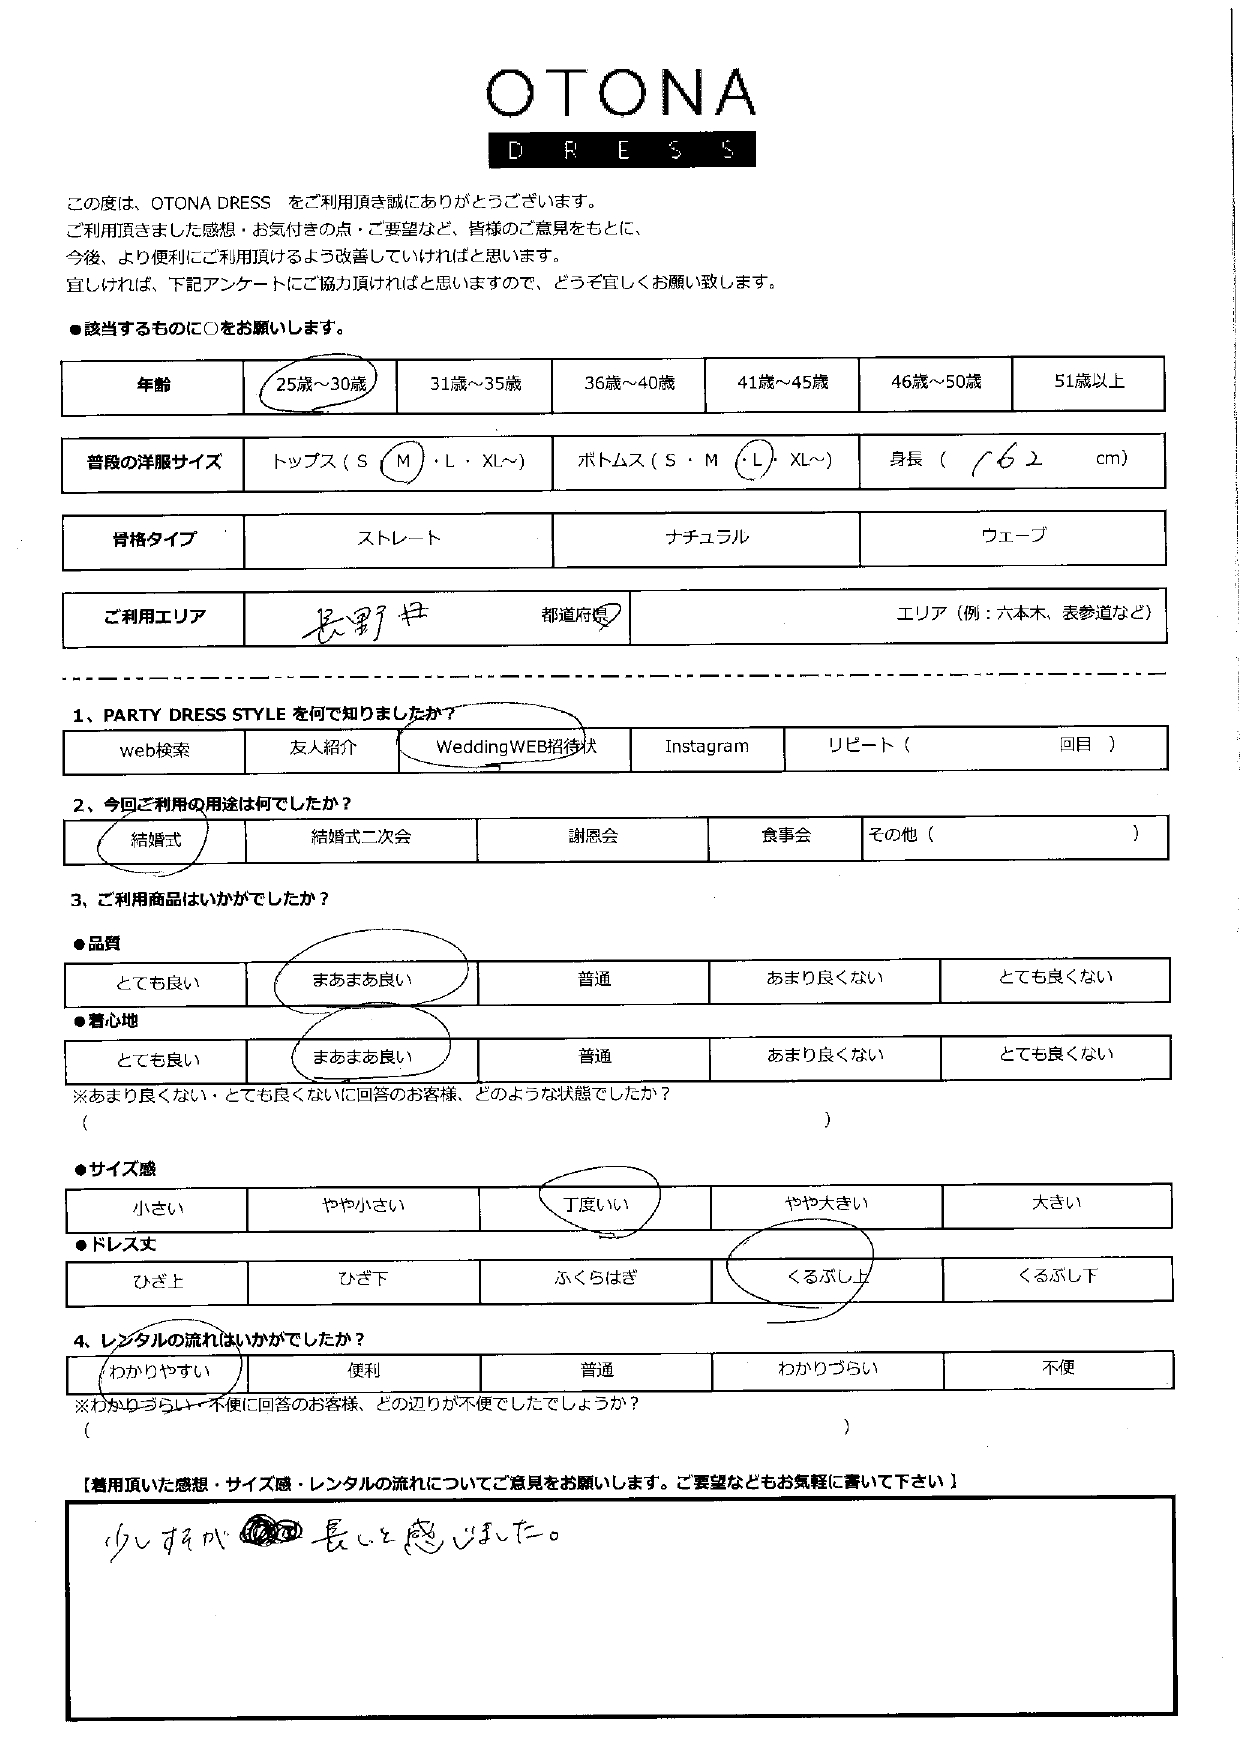 OTONA
DRESS
この度は、OTONA DRESS をご利用頂き誠にありがとうございます。
ご利用頂きました感想・お気付きの点・ご要望など、皆様のご意見をもとに、
今後、より便利にご利用頂けるよう改善していければと思います。
宜しければ、下記アンケートにご協力頂ければと思いますので、どうぞ宜しくお願い致します。
●該当するものに○をお願いします。
年齢 25歳～30歳 31歳～35歳 36歳～40歳 41歳～45歳 46歳～50歳 51歳以上
普段の洋服サイズ トップス ( S M ・ L ・ XL～) ボトムス ( S ・ M ・ L ・ XL～) 身長 ( 162 cm)
骨格タイプ ストレート ナチュラル ウェーブ
ご利用エリア 長野 都道府県 エリア（例：六本木、表参道など）
1、PARTY DRESS STYLE を何で知りましたか？
web検索 友人紹介 WeddingWEB招待状 Instagram リピート ( 回目 )
2、今回ご利用の用途は何でしたか？
結婚式 結婚式二次会 謝恩会 食事会 その他 ( )
3、ご利用商品はいかがでしたか？
●品質
とても良い まあまあ良い 普通 あまり良くない とても良くない
●着心地
とても良い まあまあ良い 普通 あまり良くない とても良くない
※あまり良くない・とても良くないに回答のお客様、どのような状態でしたか？
( )
●サイズ感
小さい やや小さい 丁度いい やや大きい 大きい
●ドレス丈
ひざ上 ひざ下 ふくらはぎ くるぶし上 くるぶし下
4、レンタルの流れはいかがでしたか？
わかりやすい 便利 普通 わかりづらい 不便
※わかりづらい・不便に回答のお客様、どの辺りが不便でしたでしょうか？
( )
【着用頂いた感想・サイズ感・レンタルの流れについてご意見をお願いします。ご要望などもお気軽に書いて下さい】
少しすそが 長いと感じました。